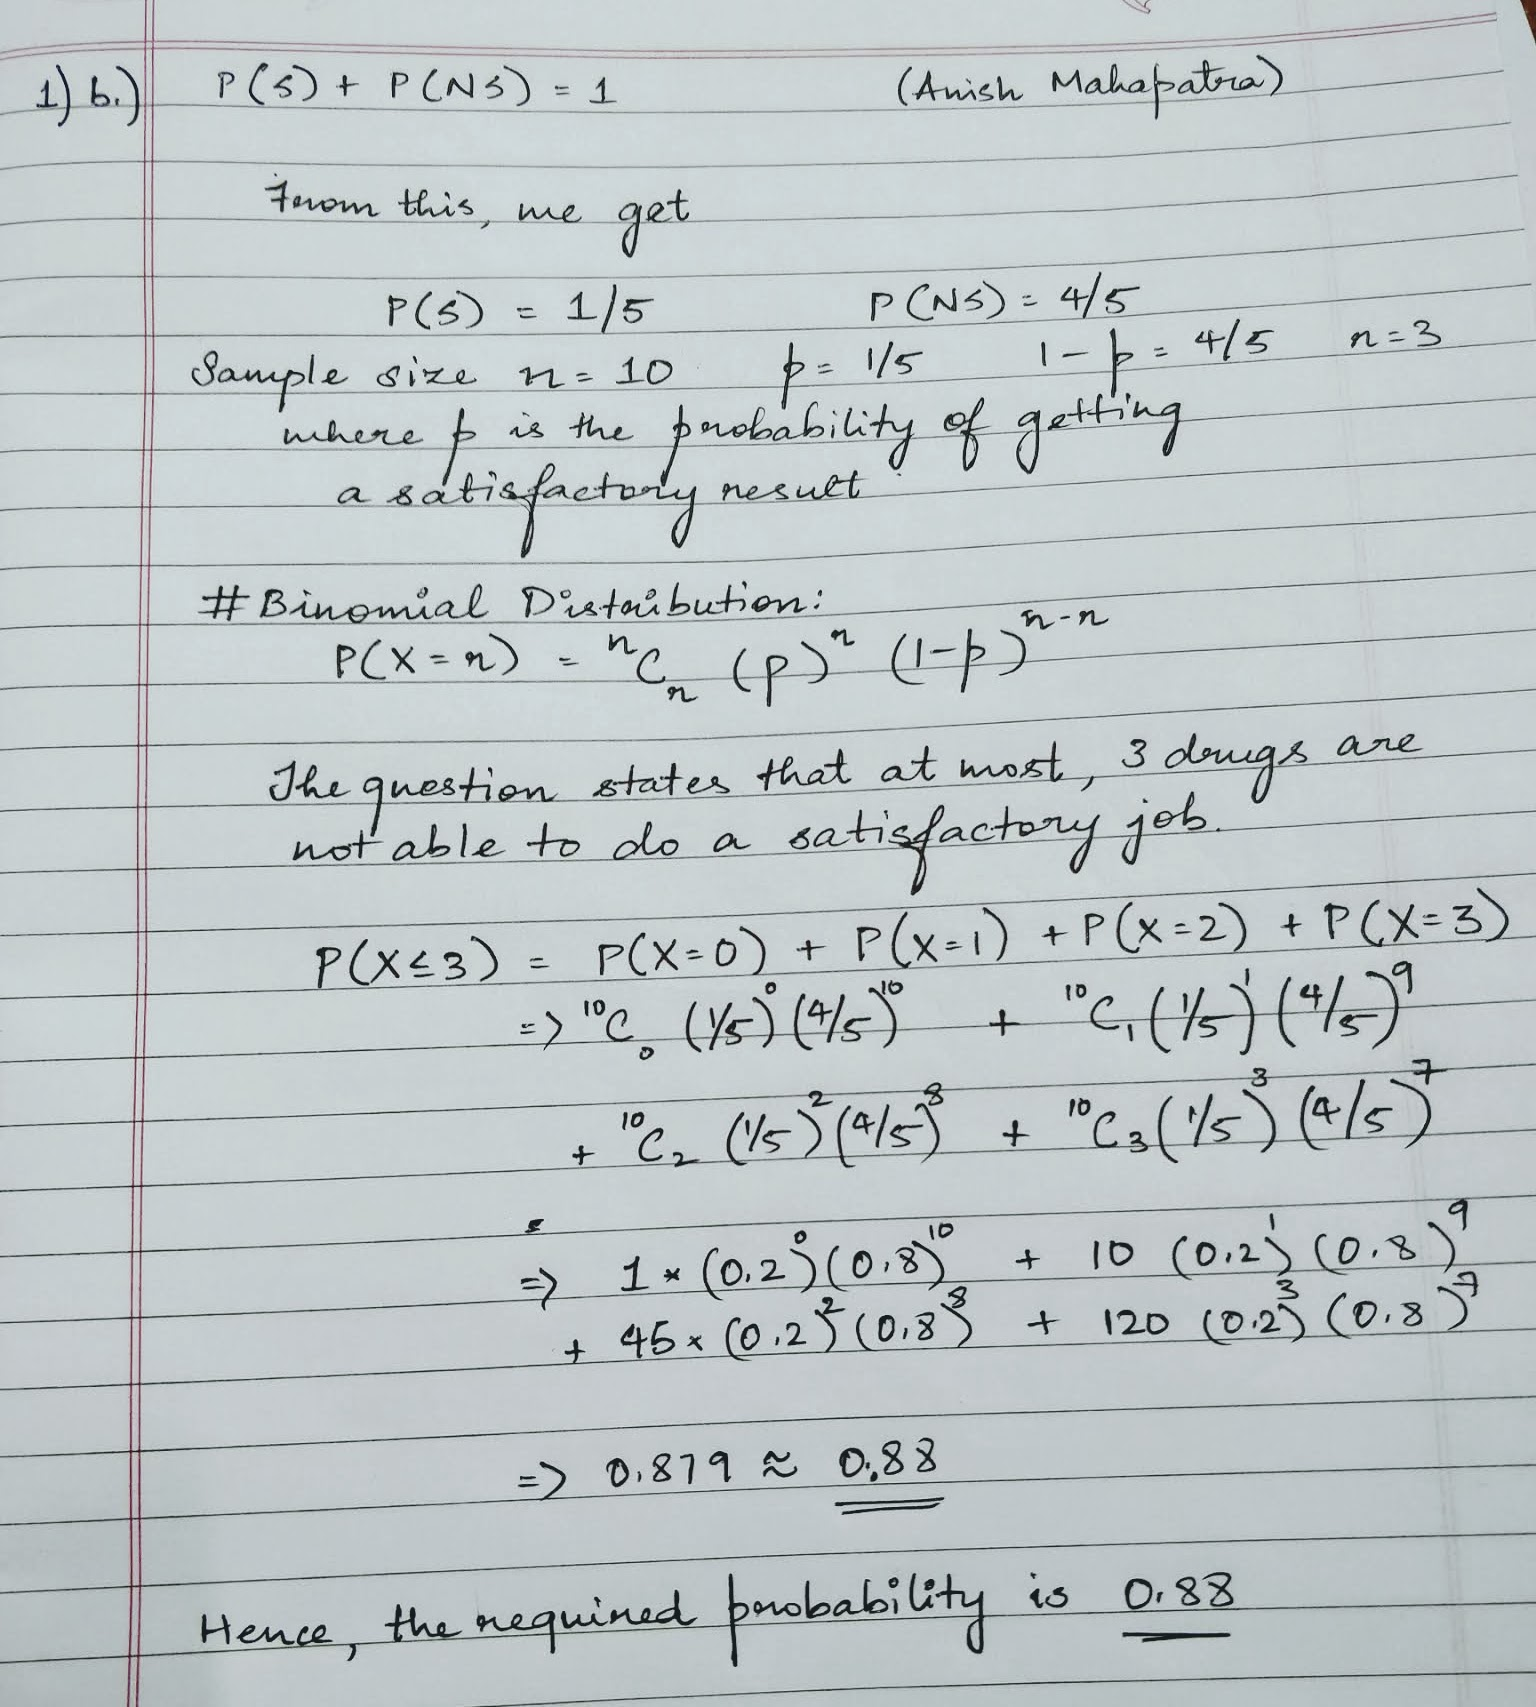 1) b.) P(S) + P(NS) = 1 (Anish Mahapatra)
From this, we get
P(S) = 1/5 P(NS) = 4/5
Sample size n = 10 p = 1/5 1 - p = 4/5 r = 3
where p is the probability of getting
a satisfactory result.
# Binomial Distribution:
P(X = r) = ⁿCᵣ (p)ʳ (1-p)ⁿ⁻ʳ
The question states that at most, 3 drugs are
not able to do a satisfactory job.
P(X ≤ 3) = P(X=0) + P(X=1) + P(X=2) + P(X=3)
=> ¹⁰C₀ (1/5)⁰ (4/5)¹⁰ + ¹⁰C₁ (1/5)¹ (4/5)⁹
+ ¹⁰C₂ (1/5)² (4/5)⁸ + ¹⁰C₃ (1/5)³ (4/5)⁷
=> 1 * (0.2)⁰ (0.8)¹⁰ + 10 (0.2)¹ (0.8)⁹
+ 45 × (0.2)² (0.8)⁸ + 120 (0.2)³ (0.8)⁷
=> 0.879 ≈ 0.88
Hence, the required probability is 0.88